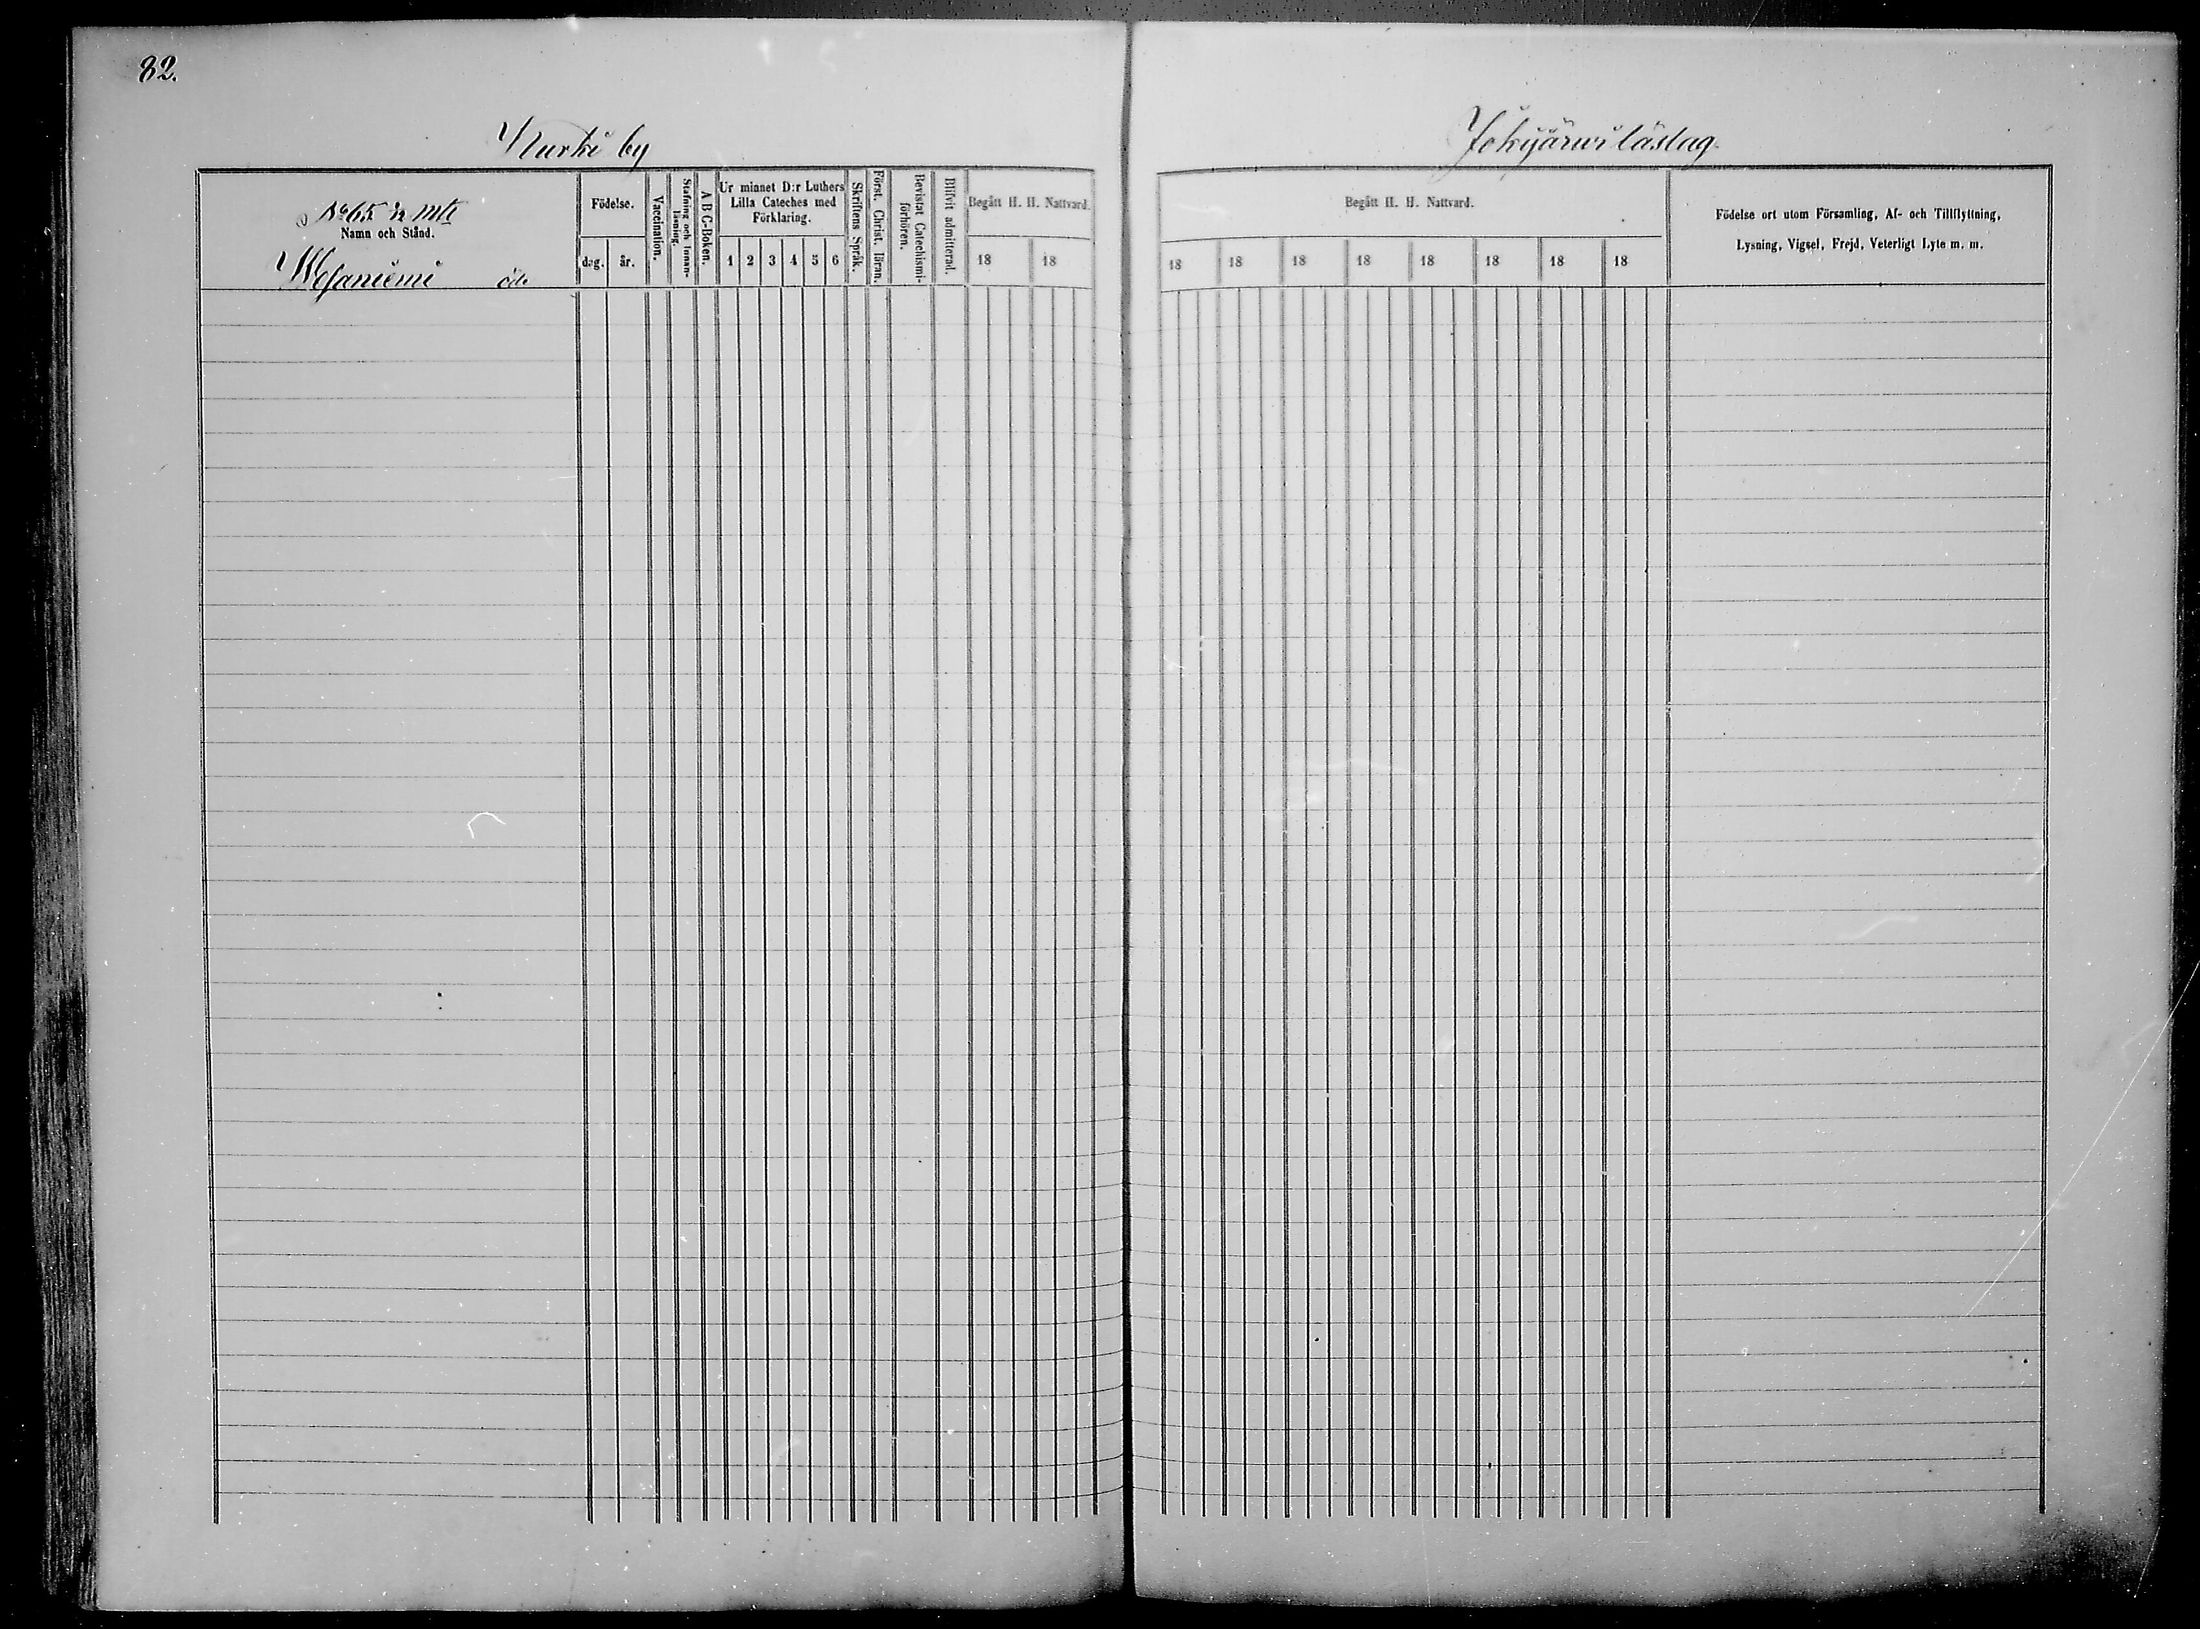 82.
Kurki by
Jokijärwi läslag
No 65 1/12 mtl
Namn och Stånd.
Födelse.
dag. år.
Vaccination.
Stafning och Innan-läsning.
A B C-Boken.
Ur minnet D:r Luthers
Lilla Cateches med
Förklaring.
1 2 3 4 5 6
Skriftens Språk.
Först. Christ. läran.
Bevistat Catechismi-förhören.
Blifvit admitterad.
Begått H. H. Nattvard.
18 18
Begått H. H. Nattvard.
18 18 18 18 18 18 18 18
Födelse ort utom Församling, Af- och Tillflyttning,
Lysning, Vigsel, Frejd, Veterligt Lyte m. m.
öde